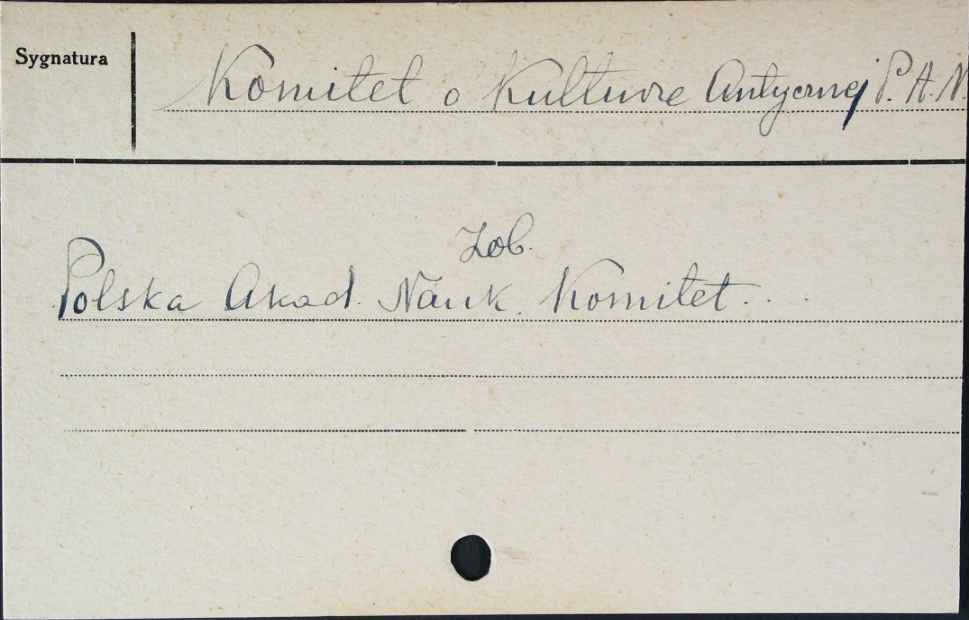 Sygnatura
Komitet o Kulturze Antycznej P.A.N.
Zob.
Polska Akad. Nauk. Komitet...